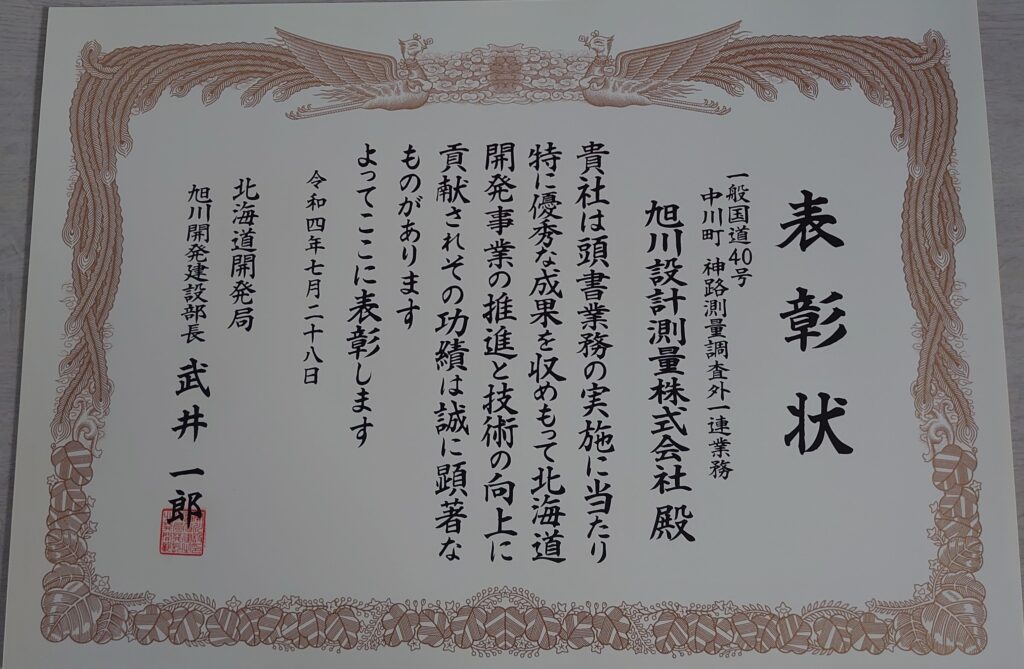 表彰状
一般国道40号
中川町 神路測量調査外一連業務
旭川設計測量株式会社 殿
貴社は頭書業務の実施に当たり
特に優秀な成果を収めもって北海道
開発事業の推進と技術の向上に
貢献されその功績は誠に顕著な
ものがあります
よってここに表彰します
令和四年七月二十八日
北海道開発局
旭川開発建設部長 武井一郎